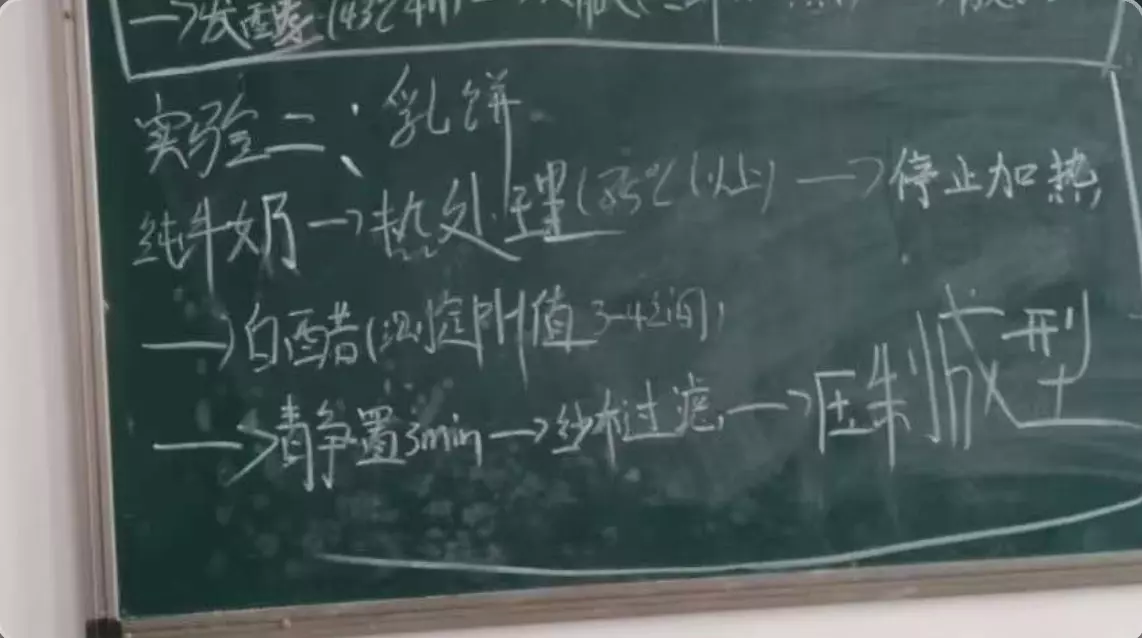 →发酵(43℃4h)
实验二、乳饼
纯牛奶→热处理(85℃以上)→停止加热
→白醋(测定PH值3-4之间)
→静置3min→纱布过滤→压制成型